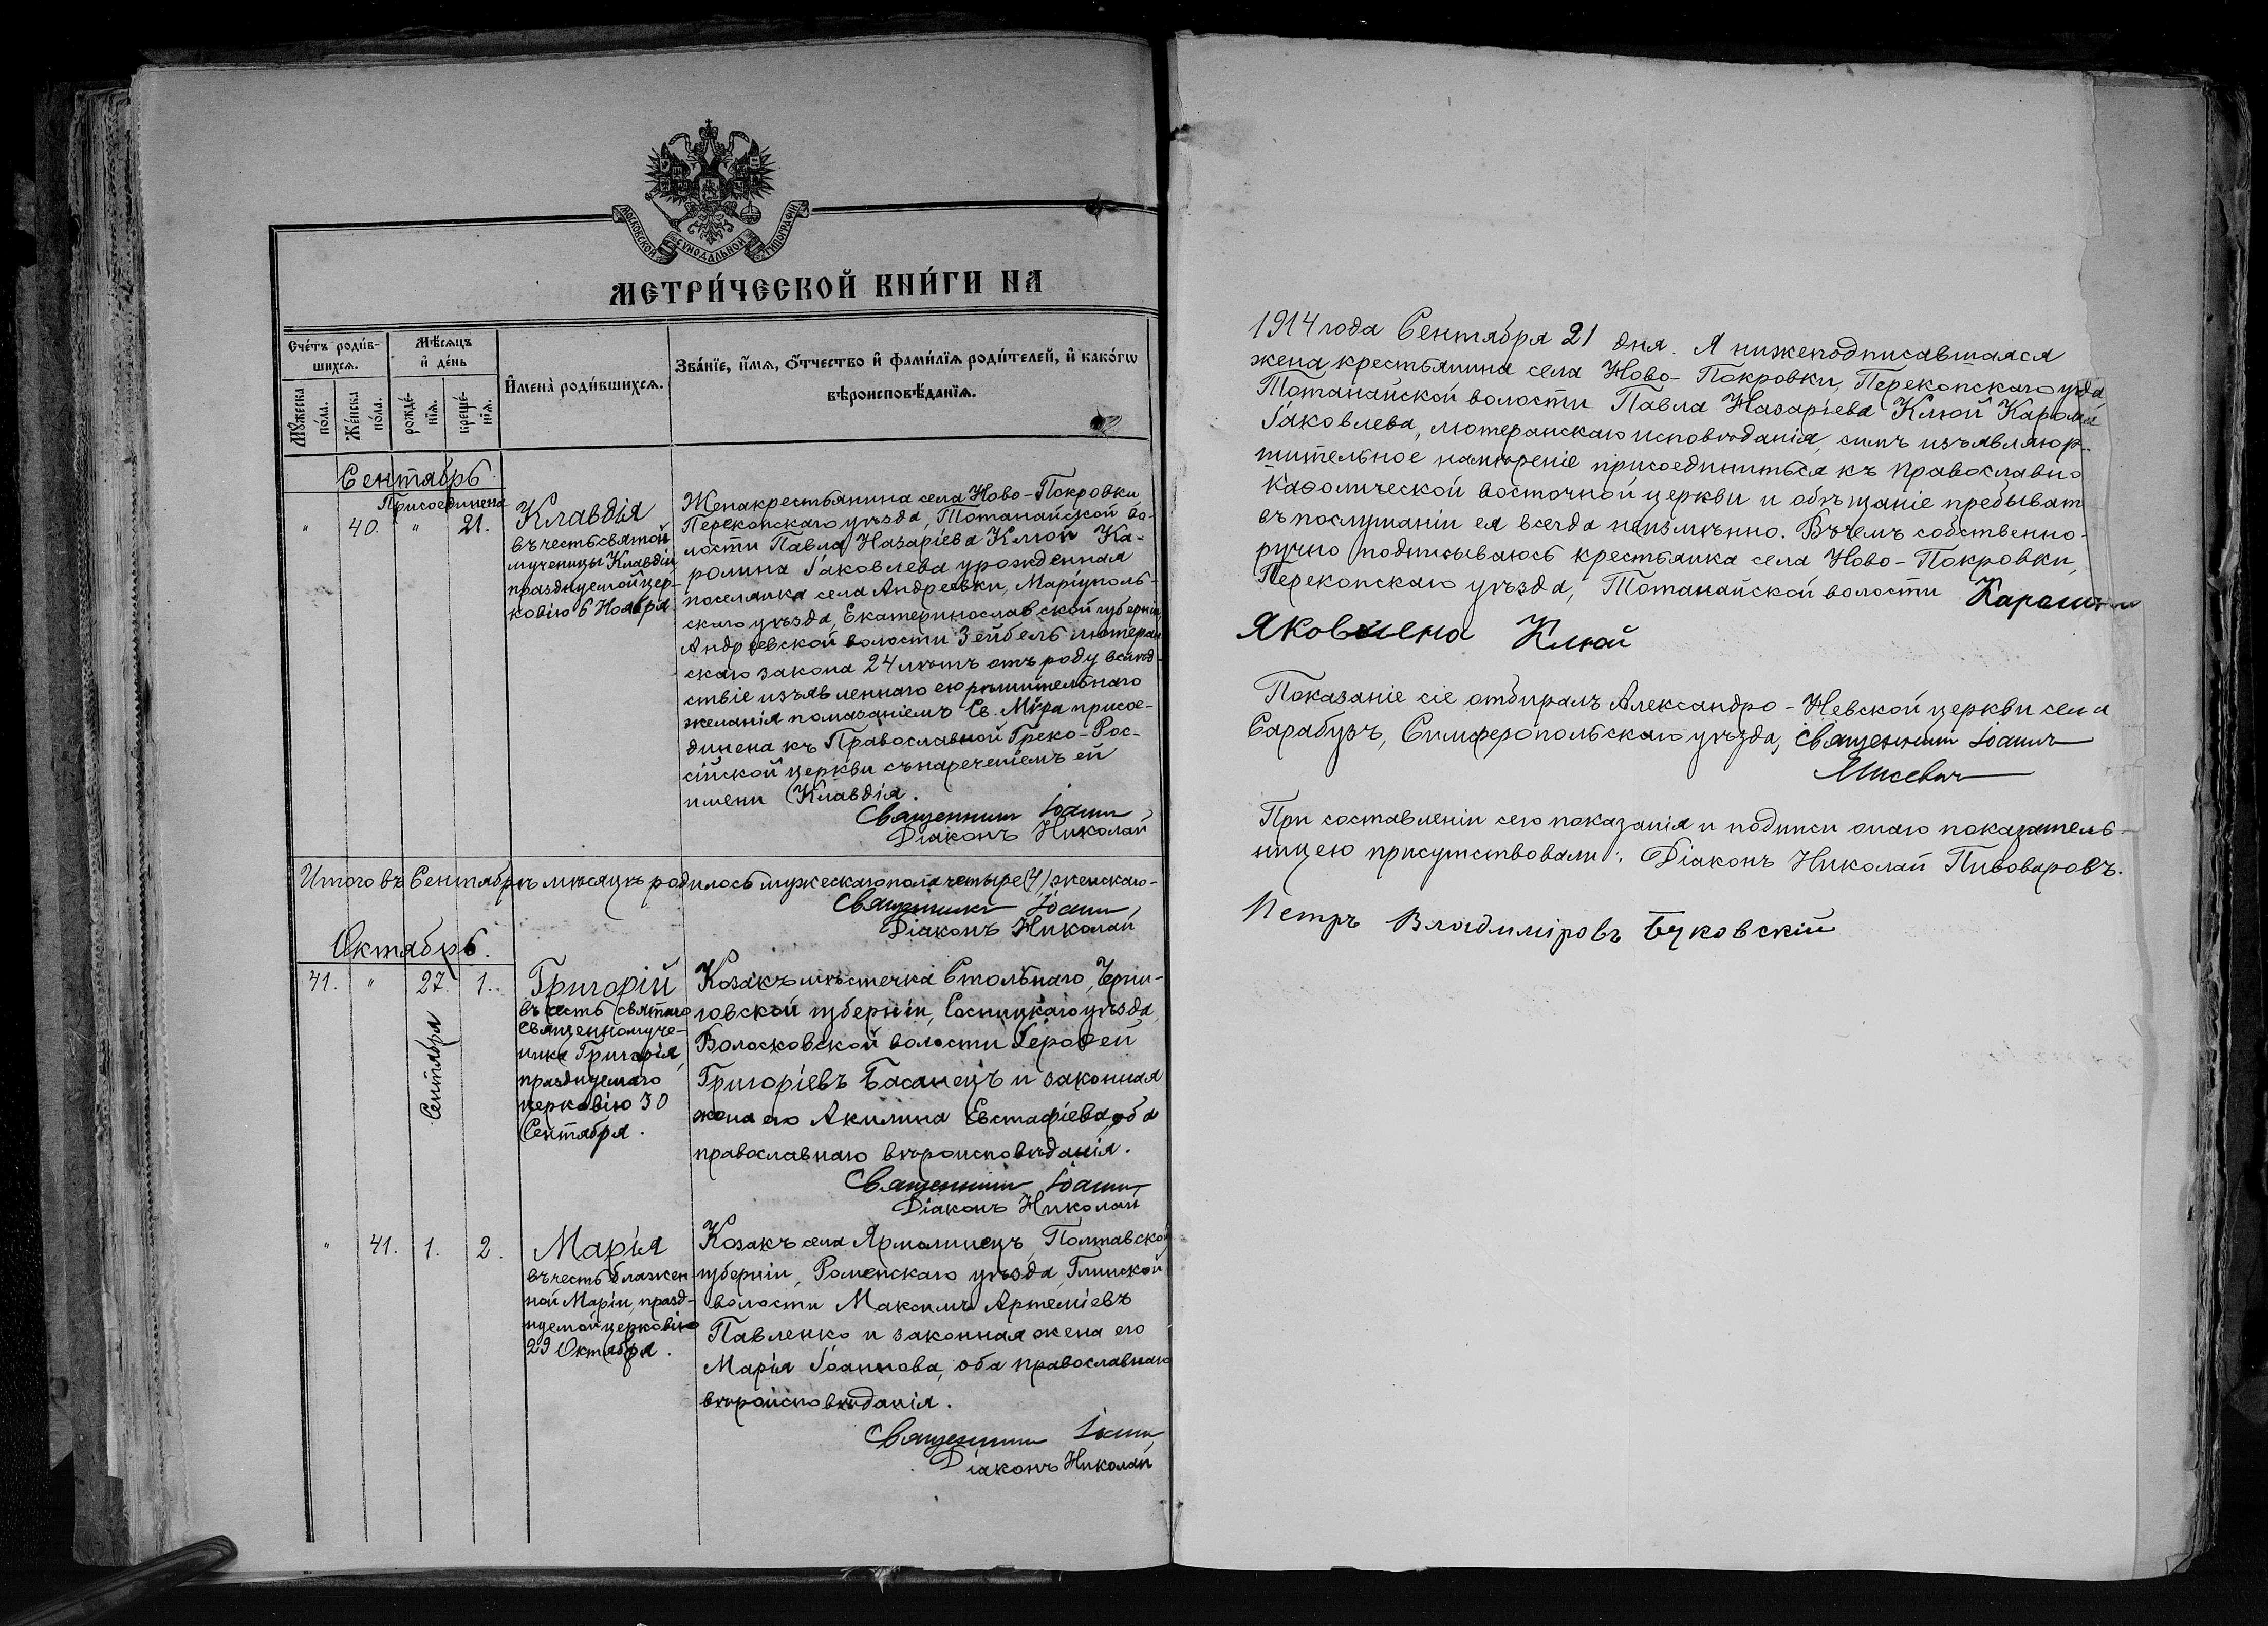 МОСКОВСКОЙ СѴНОДАЛЬНОЙ ТИПОГРАФІИ
МЕТРИ́ЧЕСКОЙ КНИ́ГИ НА
Сче́тъ роди́вшихсѧ.
Мꙋ́жеска по́ла.
Же́нска по́ла.
Мѣ́сѧцъ и҆ де́нь
рожде́нїѧ.
креще́нїѧ.
И҆мена̀ роди́вшихсѧ.
Зва́нїе, и҆́мѧ, ѻ҆́тчество и҆ фами́лїѧ роди́телей, и҆ како́гѡ
вѣроисповѣ́данїѧ.
Сентябрь.
Присоединена
" 40. " 21.
Клавдія
въ честь святой
мученицы Клавдіи,
празднуемой цер-
ковію 6 Ноября
Жена крестьянина села Ново-Покровки
Перекопскаго уѣзда, Тотанайской во-
лости Павла Назаріева Клюй Ка-
ролина Іаковлева урожденная
поселянка села Андреевки, Маріуполь-
скаго уѣзда, Екатеринославской губерніи,
Андреевской волости Зейбель лютеран
скаго закона 24 лѣтъ отъ роду вслѣд-
ствіе изъявленнаго ею рѣшительнаго
желанія помазаніемъ Св. Мѵра присое-
динена къ Православной Греко-Рос-
сійской церкви съ нареченіемъ ей
имени Клавдія.
Священникъ Іоаннъ
Діаконъ Николай
Итого въ Сентябрѣ мѣсяцѣ родилось мужескаго пола четыре (4) женскаго-
Священникъ Іоаннъ
Діаконъ Николай
Октябрь.
41. " 27. 1.
Сентября
Григорій
въ честь святаго
Священномуче-
ника Григорія,
празднуемаго
церковію 30
Сентября.
Козакъ мѣстечка Стольнаго, Черни-
говской губерніи, Сосницкаго уѣзда,
Волосковской волости Іероѳей
Григоріевъ Басанецъ и законная
жена его Акилина Евстафіева, оба
православнаго вѣроисповѣданія.
Священникъ Іоаннъ
Діаконъ Николай
" 41. 1. 2.
Марія
въ честь блажен
ной Маріи, празд-
нуемой церковію
29 Октября.
Козакъ села Ярмолинецъ, Полтавской
губерніи, Роменскаго уѣзда, Глинской
волости Максимъ Артеміевъ
Павленко и законная жена его
Марія Іоаннова, оба православнаго
вѣроисповѣданія.
Священникъ Іоаннъ
Діаконъ Николай
1914 года Сентября 21 дня. Я нижеподписавшаяся
жена крестьянина села Ново-Покровки, Перекопскаго уѣзда,
Тотанайской волости Павла Назаріева Клюй Каролина
Іаковлева, лютеранскаго исповѣданія, симъ изъявляю р..
шительное намѣреніе присоединиться къ православно
каѳолической восточной церкви и обѣщаніе пребыват
въ послушаніи ея всегда неизмѣнно. Въ чемъ собственно-
ручно подписываюсь крестьянка села Ново-Покровки,
Перекопскаго уѣзда, Тотанайской волости
Яковлена Клюй
Показаніе сіе отбиралъ Александро-Невской церкви села
Сарабузъ, Симферопольскаго уѣзда, Священникъ Іоаннъ
Мисевич
При составленіи сего показанія и подписи онаго показатель-
ницею присутствовали:, Діаконъ Николай Пивоваровъ.
Петръ Владиміровъ Буковскій